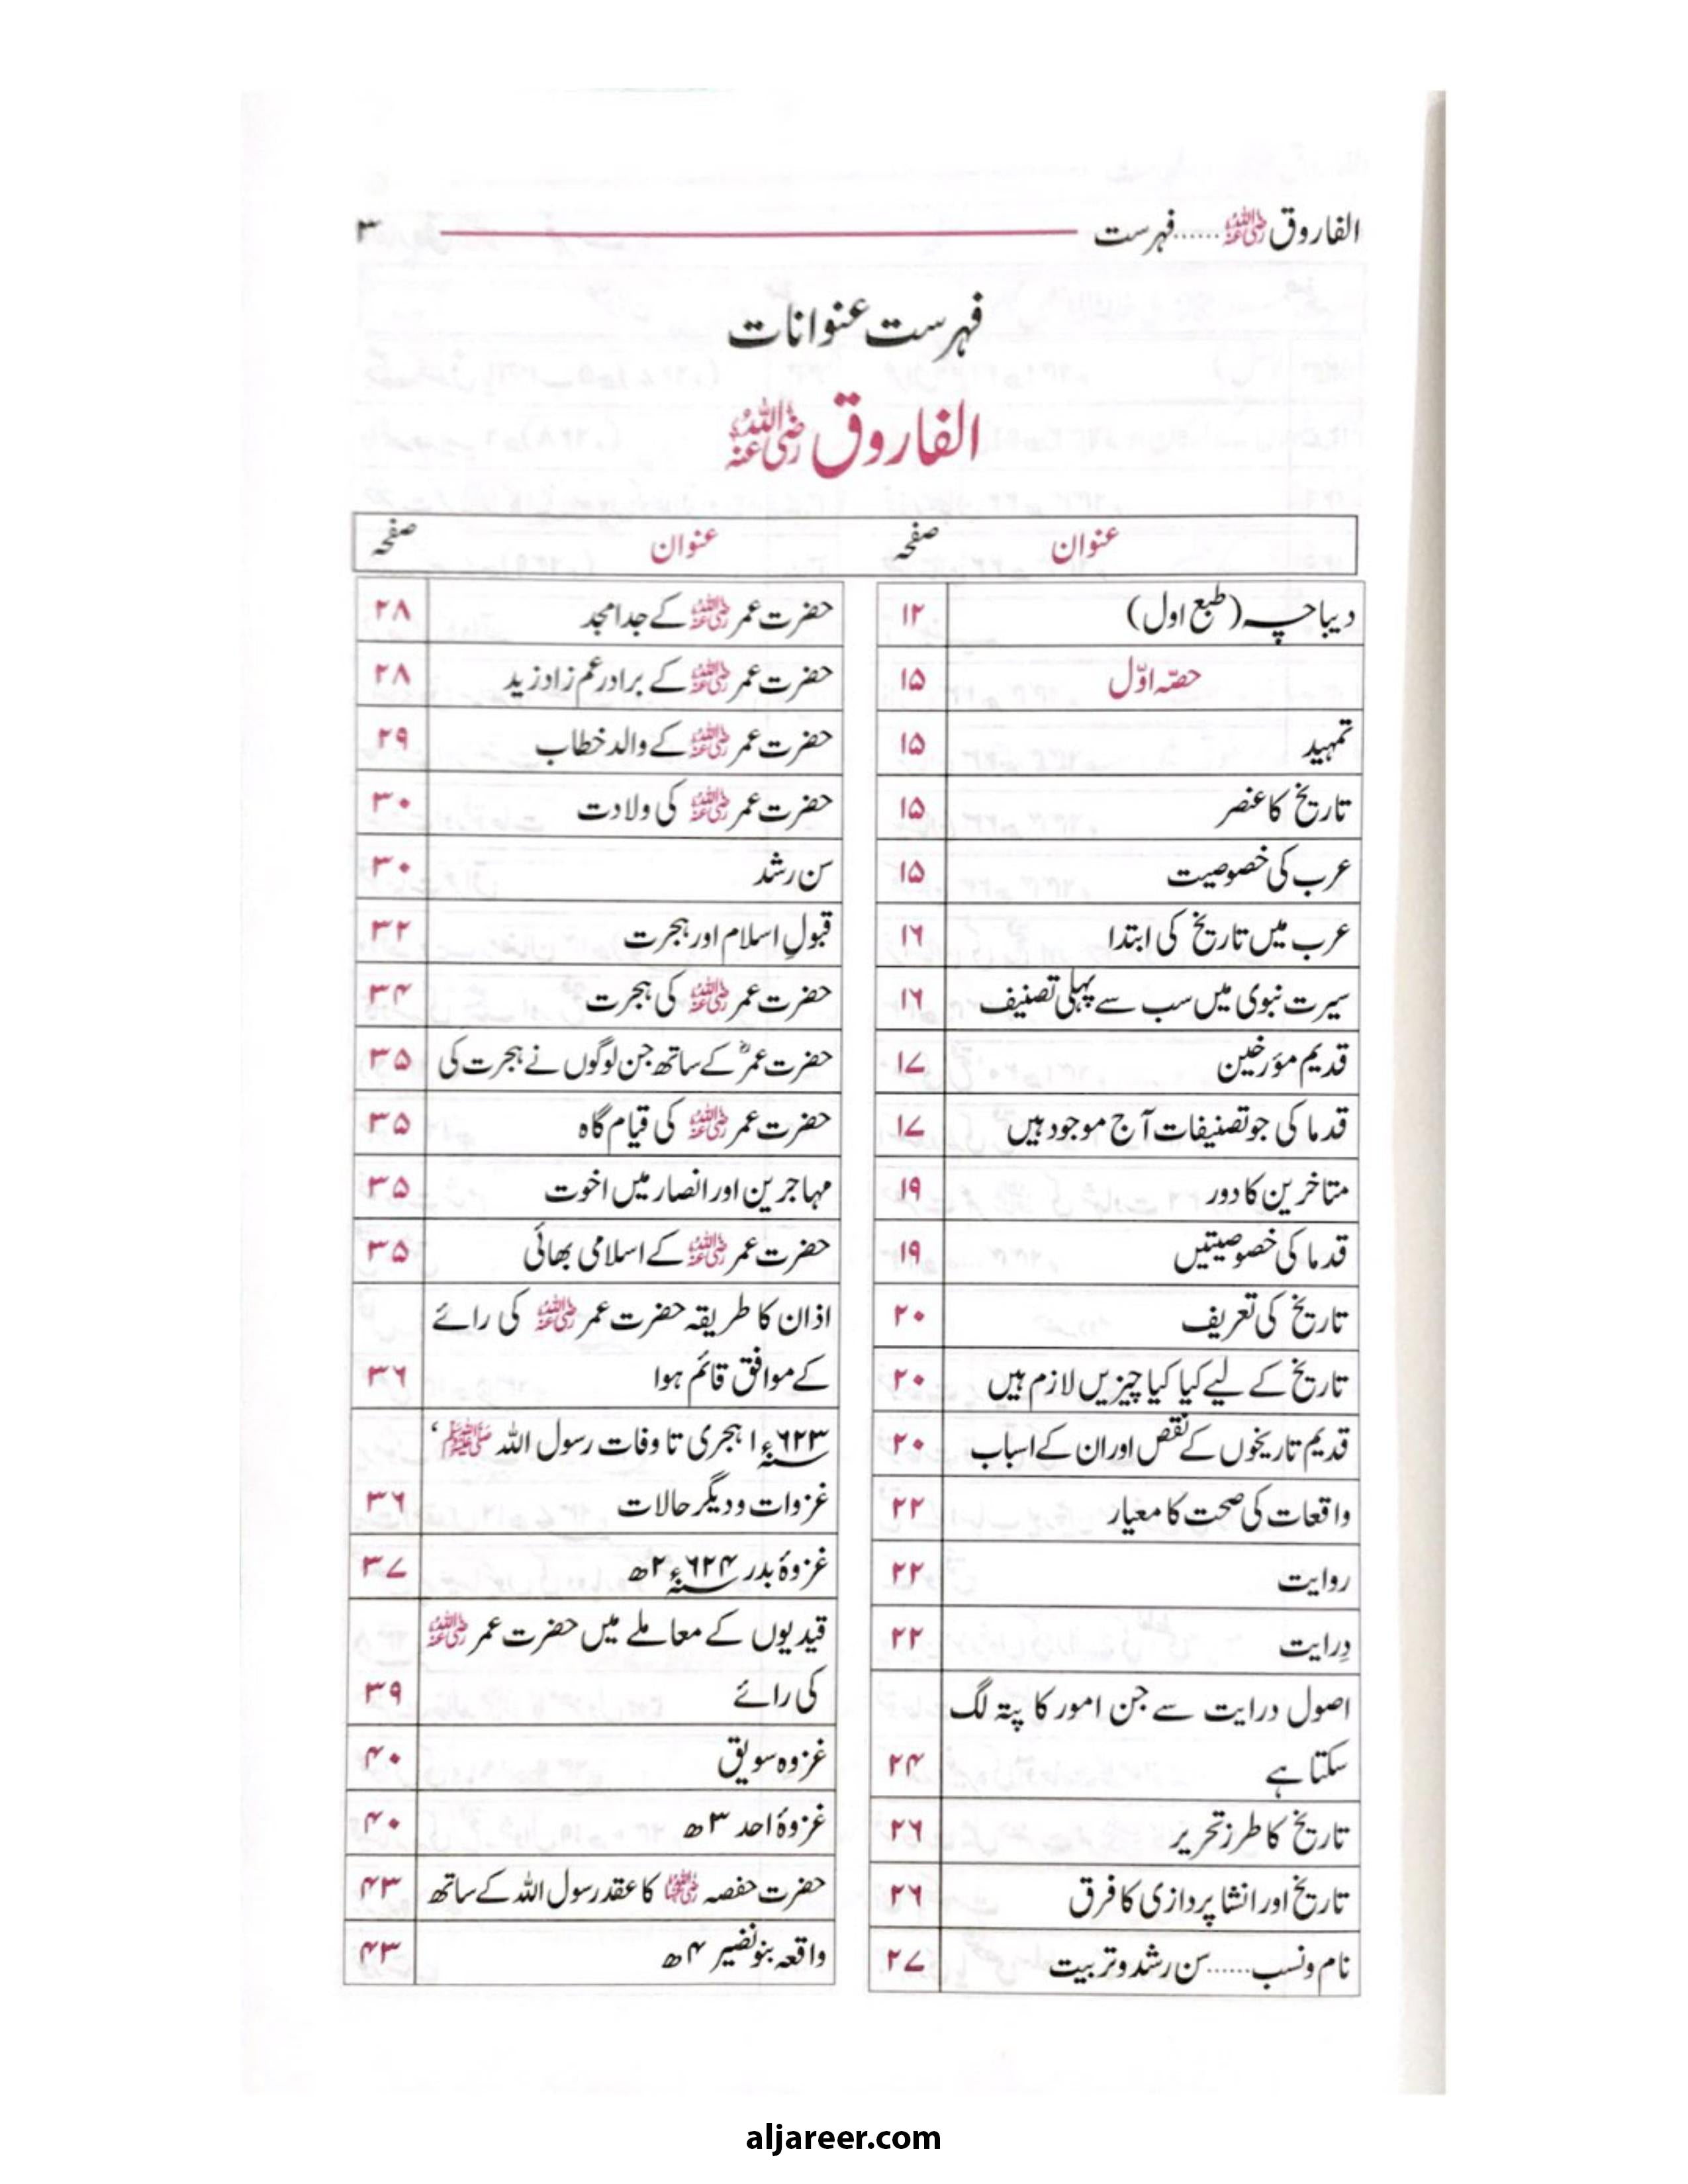 الفاروق رضی اللہ عنہ......فہرست ۳
فہرست عنوانات
الفاروق رضی اللہ عنہ
عنوان صفحہ عنوان صفحہ
دیباچہ (طبع اول) ۱۲
حصّہ اوّل ۱۵
تمہید ۱۵
تاریخ کا عنصر ۱۵
عرب کی خصوصیت ۱۵
عرب میں تاریخ کی ابتدا ۱۶
سیرت نبوی میں سب سے پہلی تصنیف ۱۶
قدیم مؤرخین ۱۷
قدما کی جو تصنیفات آج موجود ہیں ۱۷
متاخرین کا دور ۱۹
قدما کی خصوصیتیں ۱۹
تاریخ کی تعریف ۲۰
تاریخ کے لیے کیا کیا چیزیں لازم ہیں ۲۰
قدیم تاریخوں کے نقص اور ان کے اسباب ۲۰
واقعات کی صحت کا معیار ۲۲
روایت ۲۲
دِرایت ۲۲
اصول درایت سے جن امور کا پتہ لگ
سکتا ہے ۲۴
تاریخ کا طرز تحریر ۲۶
تاریخ اور انشا پردازی کا فرق ۲۶
نام و نسب......سن رشد و تربیت ۲۷
حضرت عمر رضی اللہ عنہ کے جد امجد ۲۸
حضرت عمر رضی اللہ عنہ کے برادر عم زاد زید ۲۸
حضرت عمر رضی اللہ عنہ کے والد خطاب ۲۹
حضرت عمر رضی اللہ عنہ کی ولادت ۳۰
سن رشد ۳۰
قبولِ اسلام اور ہجرت ۳۲
حضرت عمر رضی اللہ عنہ کی ہجرت ۳۴
حضرت عمرؓ کے ساتھ جن لوگوں نے ہجرت کی ۳۵
حضرت عمر رضی اللہ عنہ کی قیام گاہ ۳۵
مہاجرین اور انصار میں اخوت ۳۵
حضرت عمر رضی اللہ عنہ کے اسلامی بھائی ۳۵
اذان کا طریقہ حضرت عمر رضی اللہ عنہ کی رائے
کے موافق قائم ہوا ۳۶
۶۲۳ء ۱ ہجری تا وفات رسول اللہ ﷺ،
غزوات و دیگر حالات ۳۶
غزوۂ بدر ۶۲۴ء ۲ھ ۳۷
قیدیوں کے معاملے میں حضرت عمر رضی اللہ عنہ
کی رائے ۳۹
غزوہ سویق ۴۰
غزوۂ احد ۳ھ ۴۰
حضرت حفصہ رضی اللہ عنہا کا عقد رسول اللہ کے ساتھ ۴۳
واقعہ بنو نضیر ۴ھ ۴۳
aljareer.com